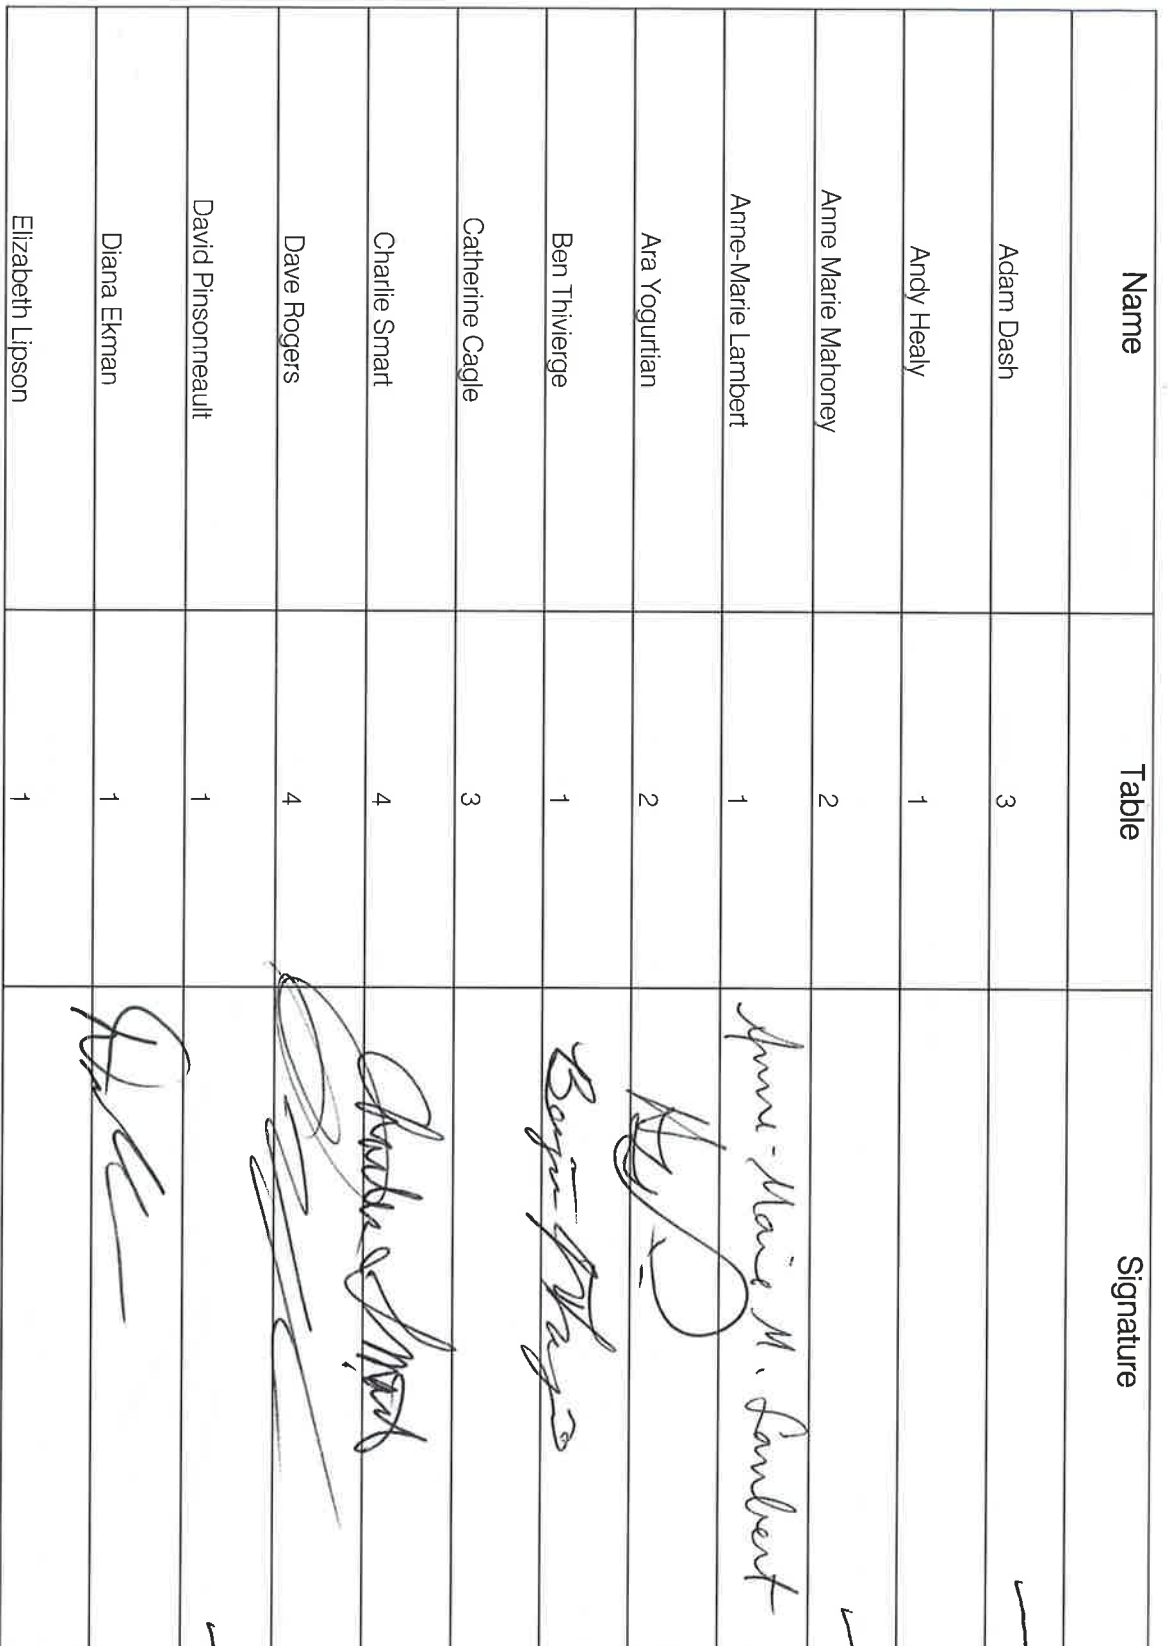 Name Table Signature
Adam Dash 3
Andy Healy 1
Anne Marie Mahoney 2
Anne-Marie Lambert 1 Anne-Marie M. Lambert
Ara Yogurtian 2
Ben Thivierge 1
Catherine Cagle 3
Charlie Smart 4 Charles Smart
Dave Rogers 4
David Pinsonneault 1
Diana Ekman 1
Elizabeth Lipson 1